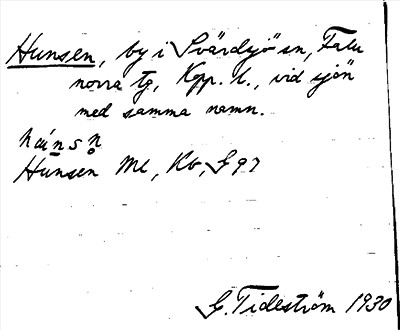 Hunsen, by i Svärdsjö sn, Falu
norra tg, Kopp. l., vid sjön
med samma namn.
húnsn̥
Hunsen Ml, Kb, G 97
G. Tideström 1930